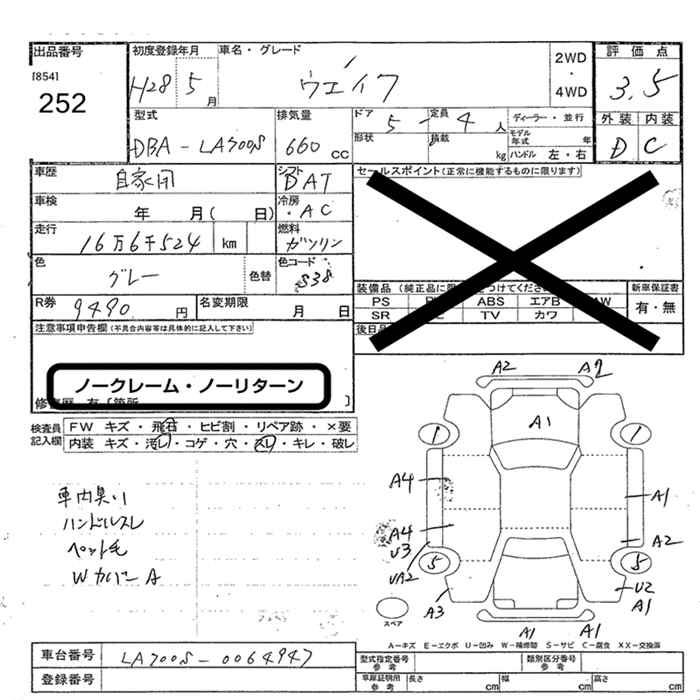 出品番号 初度登録年月 車名・グレード 2WD・4WD 評価点
[854]
252 H28 5月 ウェイク 3.5
型式 排気量 ドア 5 定員 4人 ディーラー・並行 外装 内装
DBA-LA700S 660cc 形状 積載 kg モデル年式 年 ハンドル 左・右 D C
車歴 自家用 シフト DAT セールスポイント(正常に機能するものに限ります)
車検 年 月( 日) 冷房 ・AC
走行 16万6千524 km 燃料 ガソリン
色 グレー 色替 色コード S38 装備品(純正品に 新車保証書
PS ABS エアB AW 有・無
R券 9490円 名変期限 月 日 SR TV カワ
後日
注意事項申告欄(不具合内容等は具体的に記入して下さい)
ノークレーム・ノーリターン
検査員記入欄 FW キズ・飛石・ヒビ割・リペア跡・×要
内装 キズ・汚レ・コゲ・穴・スレ・キレ・破レ
車内臭い
ハンドルスレ
ペット毛
Wカバー A
A2 A2
A1
1 1
A4 A1
A4 A2
U3
5 5
UA2 U2
A3 A1
A1 A1
スペア
A－キズ E－エクボ U－凹み W－補修跡 S－サビ C－腐食 XX－交換済
車台番号 LA700S-0064947 型式指定番号 参考 類別区分番号 参考
登録番号 車庫証明用 参考 長さ cm 幅 cm 高さ cm